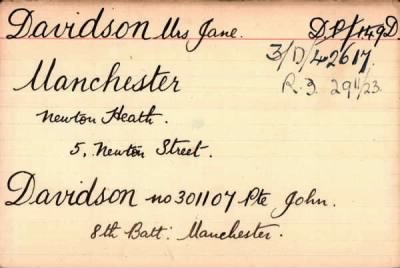 Davidson Mrs Jane. D.P/149D.
3/D/42617.
Manchester R.3. 29/1/23.
Newton Heath.
5, Newton Street.
Davidson no 301107 Pte John.
8th Batt: Manchester.